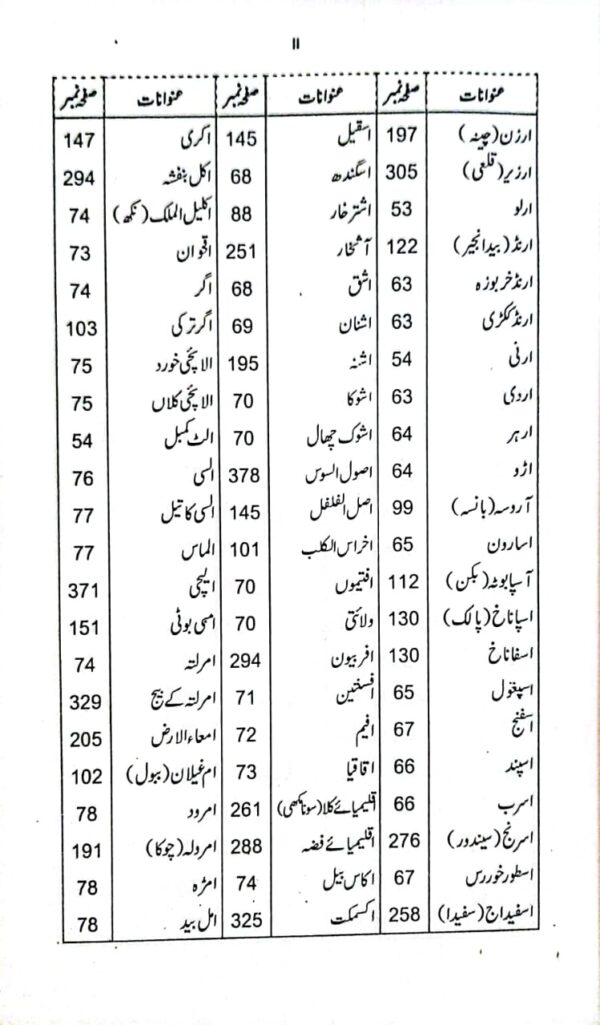 11
عنوانات صفحہ نمبر عنوانات صفحہ نمبر عنوانات صفحہ نمبر
ارزن (چینہ) 197 اسقیل 145 اکری 147
ارزیر (قلعی) 305 اسگندھ 68 اکل بنفشہ 294
ارلو 53 اشترخار 88 اکلیل الملک (نکھ) 74
ارنڈ (بیدانجیر) 122 آشخار 251 اقحوان 73
ارنڈ خربوزہ 63 اشق 68 اگر 74
ارنڈ ککڑی 63 اشنان 69 اگر ترکی 103
ارنی 54 اشنہ 195 الائچی خورد 75
اروی 63 اشوکا 70 الائچی کلاں 75
ارہر 64 اشوک چھال 70 الٹ کمبل 54
اڑو 64 اصول السوس 378 السی 76
آروسہ (بانسہ) 99 اصل الفلفل 145 السی کا تیل 77
اسارون 65 اخراس الکلب 101 الماس 77
آسپا بوٹہ (بکن) 112 افتیموں 70 ایلچی 371
اسپاناخ (پالک) 130 ولائتی 70 امسی بوٹی 151
اسفاناخ 130 افربیون 294 امرلتہ 74
اسپغول 65 افسنتین 71 امرلتہ کے بیج 329
اسفنج 67 افیم 72 امعاء الارض 205
اسپند 66 اقاقیا 73 ام غیلان (ببول) 102
اسرب 66 اقلیمیائے کلا (سونا مکھی) 261 امرود 78
اسرنج (سیندور) 276 اقلیمیائے فضہ 288 امرولہ (چوکا) 191
اسطورخوررس 67 اکاس بیل 74 امڑہ 78
اسفیداج (سفیدا) 258 اکسمکت 325 امل بید 78